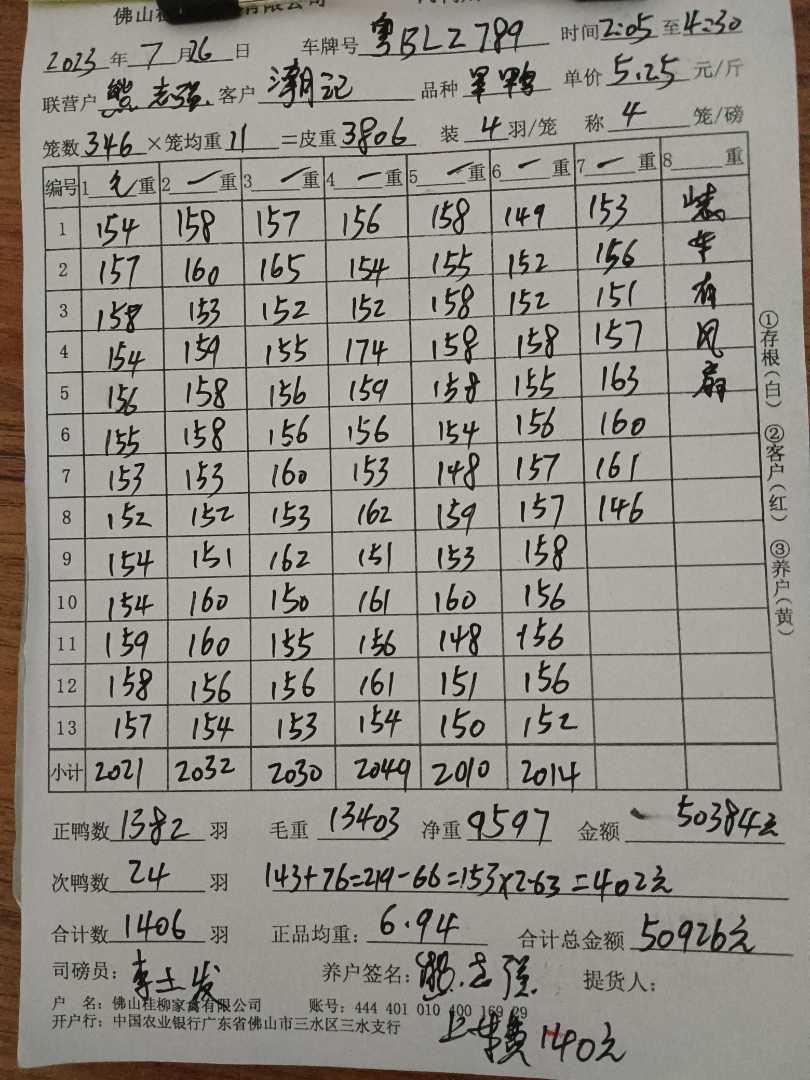 佛山桂 有限公司
2023年7月26日 车牌号 粤BLZ789 时间2:05至4:30
联营户 熊志强 客户 潮记 品种 旱鸭 单价 5.25 元/斤
笼数 346 ×笼均重 11 =皮重 3806 装 4 羽/笼 称 4 笼/磅
编号 1毛重 2一重 3一重 4一重 5一重 6一重 7一重 8 重
1 154 158 157 156 158 149 153 装
2 157 160 165 154 155 152 156 车
3 158 153 152 152 158 152 151 有
4 154 159 155 174 158 158 157 风
5 156 158 156 159 158 155 163 扇
6 155 158 156 156 154 156 160
7 153 153 160 153 148 157 161
8 152 152 153 162 159 157 146
9 154 151 162 151 153 158
10 154 160 150 161 160 156
11 159 160 155 156 148 156
12 158 156 156 161 151 156
13 157 154 153 154 150 152
小计 2021 2032 2030 2049 2010 2014
正鸭数 1382 羽 毛重 13403 净重 9597 金额 50384元
次鸭数 24 羽 143+76=219-66=153×2.63=402元
合计数 1406 羽 正品均重: 6.94 合计总金额 50926元
司磅员: 李士发 养户签名: 熊志强 提货人:
户 名: 佛山桂柳家禽有限公司 账号: 444 401 010 400 169 29
开户行: 中国农业银行广东省佛山市三水区三水支行
上车费140元
①存根(白) ②客户(红) ③养户(黄)